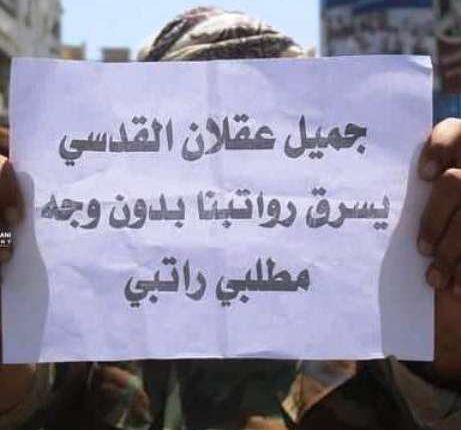 جميل عقلان القدسي
يسرق رواتبنا بدون وجه
مطلبي راتبي